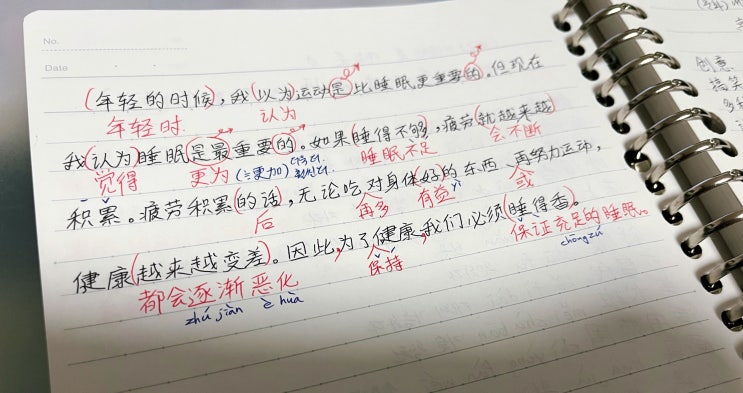 No.
Date
(年轻的时候), 我(以为)运动是比睡眠更重要的。但现在
年轻时. 认为
我(认为)睡眠是最重要的。如果(睡得不够), 疲劳(就越来越)
觉得 更为(=更加) 睡眠不足 会不断
积累。疲劳积累(的话), 无论吃对身体好的东西、再努力运动,
后 再多 有益 或
健康(越来越变差)。因此, 为了健康, 我们必须(睡得香)。
都会逐渐恶化 保持 保证充足的睡眠。
zhú jiàn è huà chōngzú
创意
搞笑